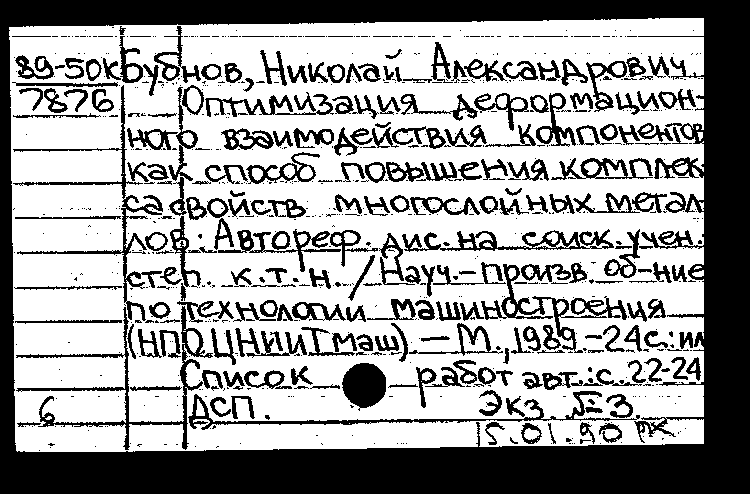 89-50к Бубнов, Николай Александрович
7876 Оптимизация деформацион-
ного взаимодействия компонентов
как способ повышения комплек-
са свойств многослойных метал-
лов: Автореф. дис. на соиск. учен.
степ. к.т.н. / Науч.-произв. об-ние
по технологии машиностроения
(НПО ЦНИИТмаш) — М., 1989.-24с.: ил
Список работ авт.: с. 22-24
6 ДСП. Экз. №3.
15.01.90